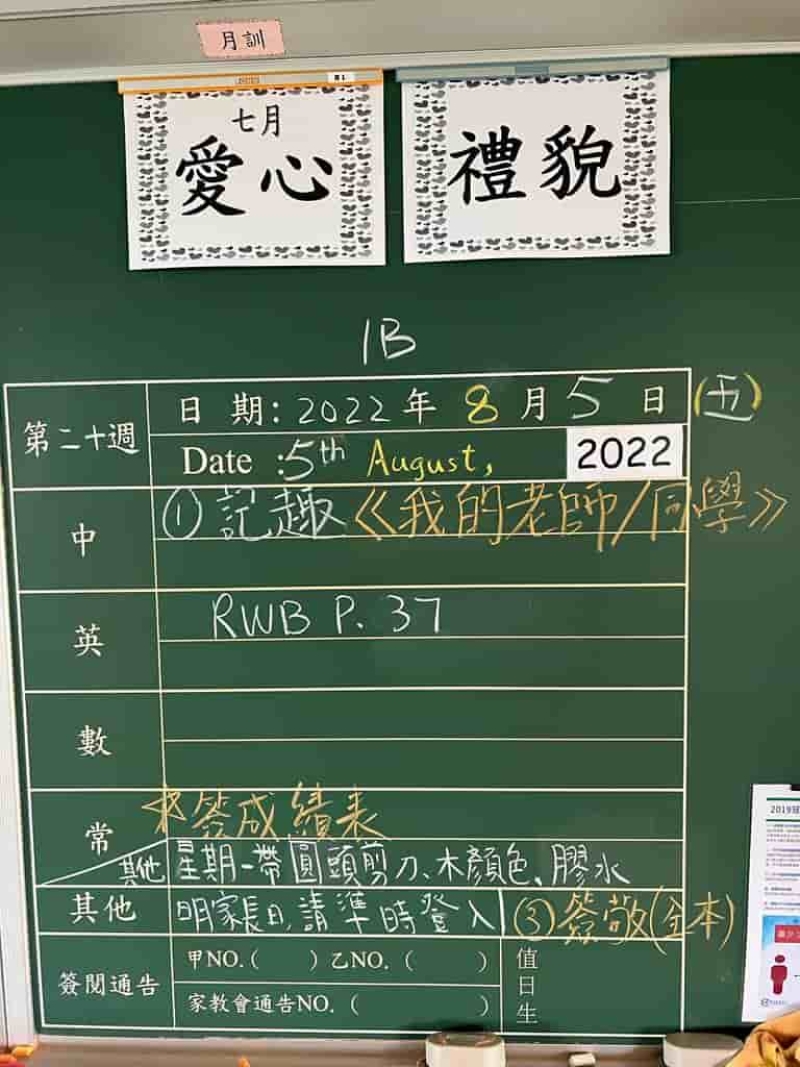 月訓
七月
愛心
禮貌
1B
第二十週
日 期: 2022 年 8 月 5 日 (五)
Date :5th August, 2022
中
① 記趣《我的老師/同學》
英
RWB P. 37
數
常
*簽成績表
其他
星期一帶圓頭剪刀、木顏色、膠水
其他
明家長日,請準時登入
(3)簽敬(全本)
簽閱通告
甲NO.( ) 乙NO. ( )
家教會通告NO. ( )
值日生